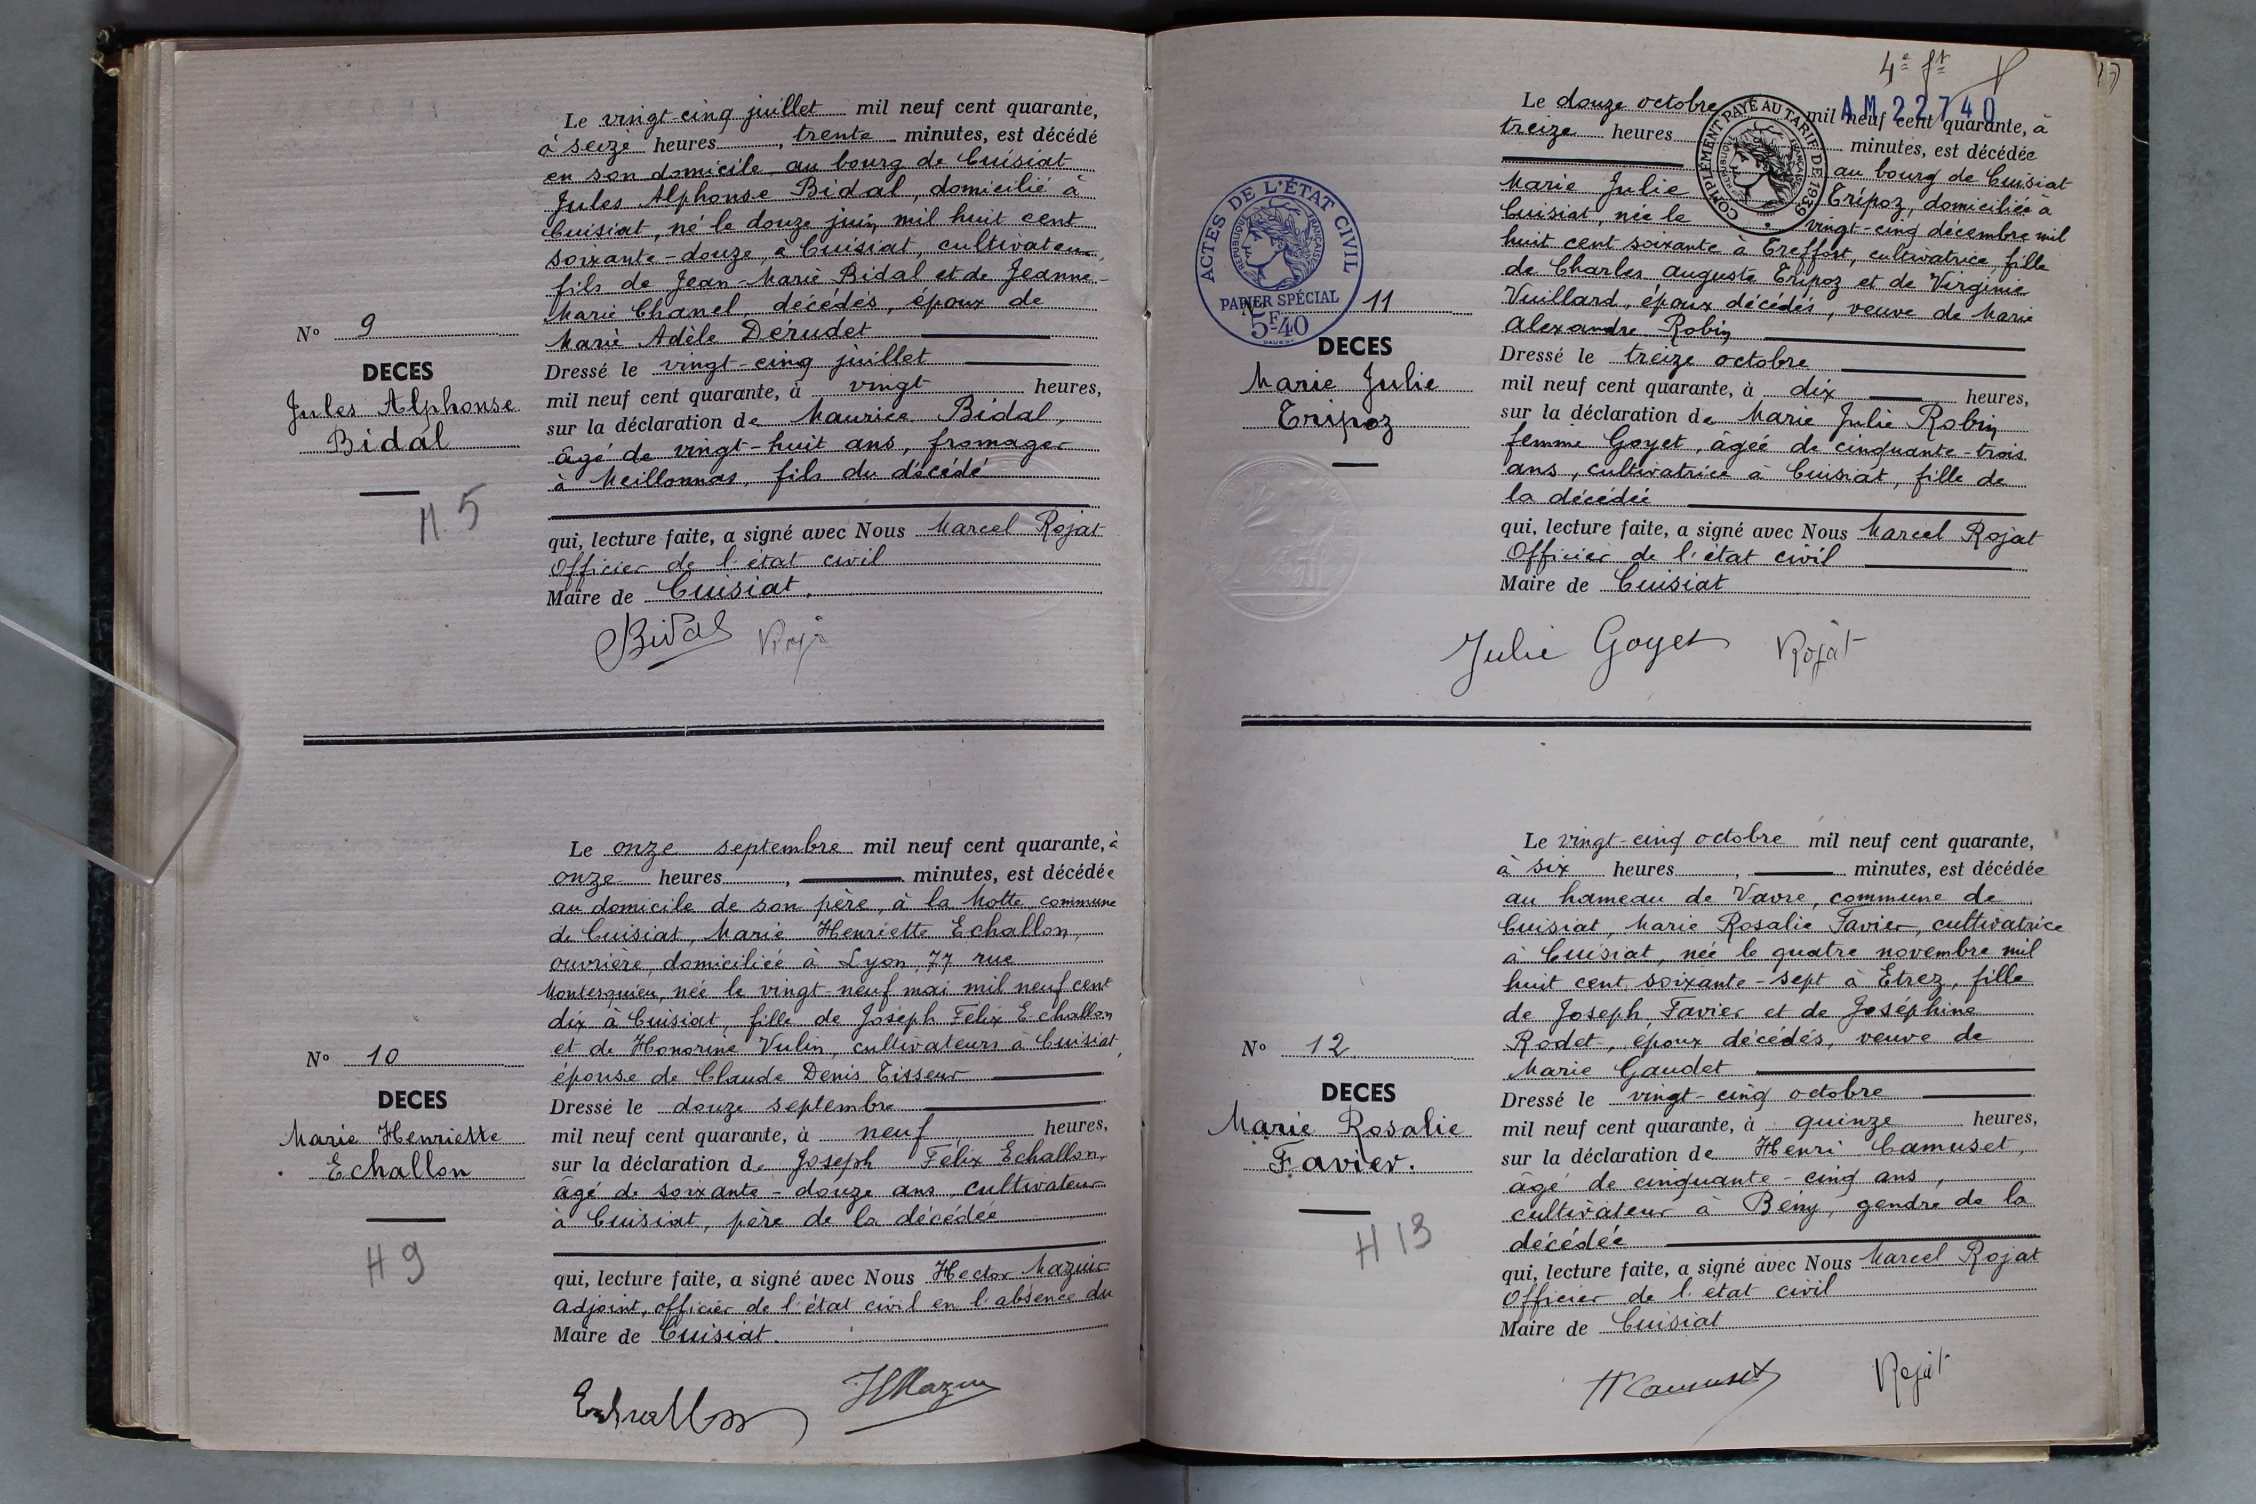 Le vingt-cinq juillet mil neuf cent quarante,
à seize heures, trente minutes, est décédé
en son domicile, au bourg de Cuisiat
Jules Alphonse Bidal, domicilié à
Cuisiat, né le douze juin mil huit cent
soixante-douze, à Cuisiat, cultivateur,
fils de Jean-Marie Bidal et de Jeanne-
Marie Chanel, décédés, époux de
Marie Adèle Dérudet
Dressé le vingt-cinq juillet
mil neuf cent quarante, à vingt heures,
sur la déclaration de Maurice Bidal,
âgé de vingt-huit ans, fromager
à Meillonnas, fils du décédé
qui, lecture faite, a signé avec Nous Marcel Rojat
Officier de l'état civil
Maire de Cuisiat.
Bidal Rojat
N° 9
DECES
Jules Alphonse
Bidal
H. 5
Le onze septembre mil neuf cent quarante, à
onze heures, minutes, est décédée
au domicile de son père, à la Motte, commune
de Cuisiat, Marie Henriette Echallon,
ouvrière, domiciliée à Lyon, 77 rue
Montesquieu, née le vingt-neuf mai mil neuf cent
dix à Cuisiat, fille de Joseph Félix Echallon
et de Honorine Vulin, cultivateurs à Cuisiat,
épouse de Claude Denis Tisseur
Dressé le douze septembre
mil neuf cent quarante, à neuf heures,
sur la déclaration de Joseph Félix Echallon,
âgé de soixante-douze ans, cultivateur
à Cuisiat, père de la décédée
qui, lecture faite, a signé avec Nous Hector Mazuir
adjoint, officier de l'état civil en l'absence du
Maire de Cuisiat.
Echallon HMazuir
N° 10
DECES
Marie Henriette
Echallon
H 9
4e ft
17
AM 22740
COMPLÉMENT PAYÉ AU TARIF DE 1939
RÉPUBLIQUE FRANÇAISE
Le douze octobre mil neuf cent quarante, à
treize heures minutes, est décédée
au bourg de Cuisiat
Marie Julie Tripoz, domiciliée à
Cuisiat, née le vingt-cinq décembre mil
huit cent soixante à Treffort, cultivatrice, fille
de Charles auguste Tripoz et de Virginie
Vuillard, époux décédés, veuve de Marie
Alexandre Robin
Dressé le treize octobre
mil neuf cent quarante, à dix heures,
sur la déclaration de Marie Julie Robin
femme Goyet, âgée de cinquante-trois
ans, cultivatrice à Cuisiat, fille de
la décédée
qui, lecture faite, a signé avec Nous Marcel Rojat
Officier de l'état civil
Maire de Cuisiat
Julie Goyet Rojat
ACTES DE L'ÉTAT CIVIL
RÉPUBLIQUE FRANÇAISE
PAPIER SPÉCIAL
5F40
11
DECES
Marie Julie
Tripoz
Le vingt-cinq octobre mil neuf cent quarante,
à six heures, minutes, est décédée
au hameau de Vavre, commune de
Cuisiat, Marie Rosalie Favier, cultivatrice
à Cuisiat, née le quatre novembre mil
huit cent soixante-sept à Etrez, fille
de Joseph Favier et de Joséphine
Rodet, époux décédés, veuve de
Marie Gaudet
Dressé le vingt-cinq octobre
mil neuf cent quarante, à quinze heures,
sur la déclaration de Henri Camuset,
âgé de cinquante-cinq ans,
cultivateur à Bény, gendre de la
décédée
qui, lecture faite, a signé avec Nous Marcel Rojat
Officier de l'état civil
Maire de Cuisiat
H Camuset Rojat
N° 12
DECES
Marie Rosalie
Favier.
H 13